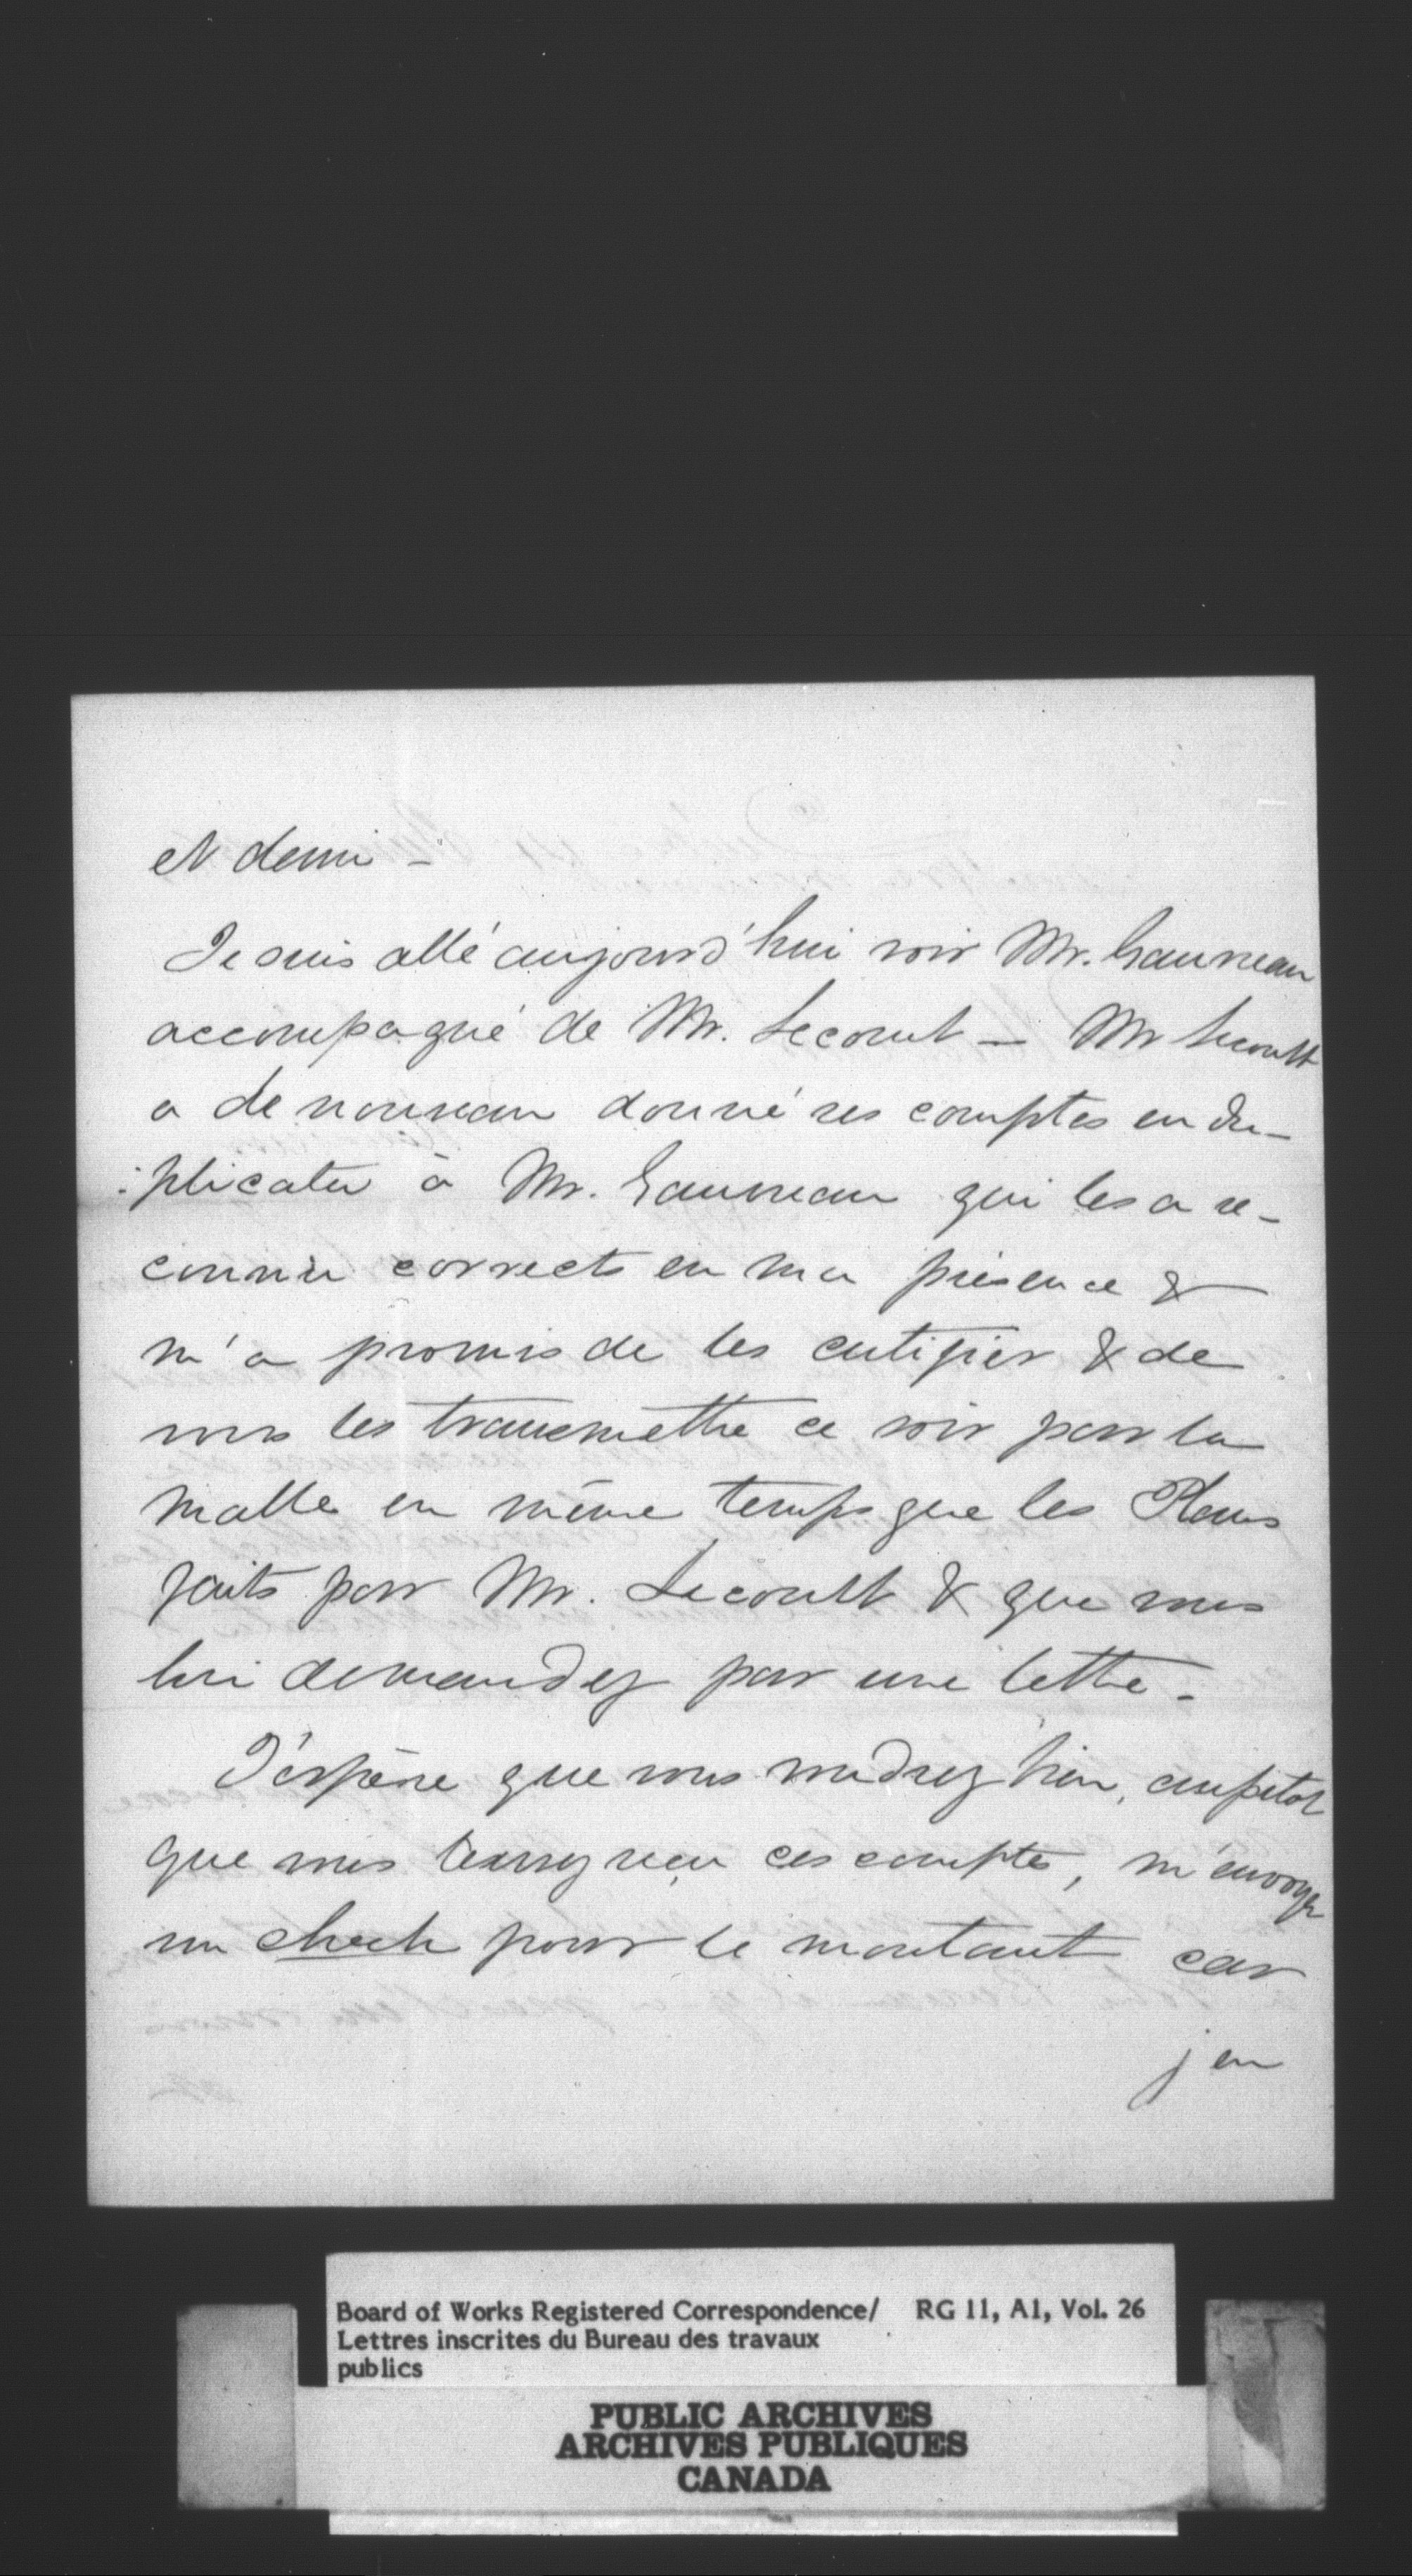 et demi -
Je suis allé aujourd'hui voir Mr. Gauvreau
accompagné de Mr. Lecourt - Mr Lecourt
a de nouveau donné ses comptes en du-
:plicata à Mr. Gauvreau qui les a re-
connu corrects en ma présence &
m'a promis de les certifier & de
vous les transmettre ce soir par la
malle en même temps que les Plans
faits par Mr. Lecourt & que vous
lui demandez par une lettre.
J'espère que vous voudrez bien, aussitot
que vous aurez reçu ces comptes, m'envoyer
un check pour le montant car
j'en
Board of Works Registered Correspondence/ RG 11, A1, Vol. 26
Lettres inscrites du Bureau des travaux
publics
PUBLIC ARCHIVES
ARCHIVES PUBLIQUES
CANADA